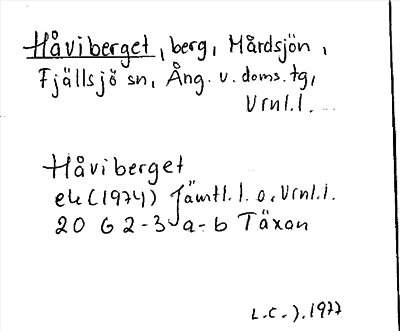 Håviberget, berg, Mårdsjön,
Fjällsjö sn, Ång. v. doms. tg,
Vrnl. l.
Håviberget
ek (1974) Jämtl. l. o. Vrnl. l.
20 G 2-3 a-b Täxan
L.C. J. 1977